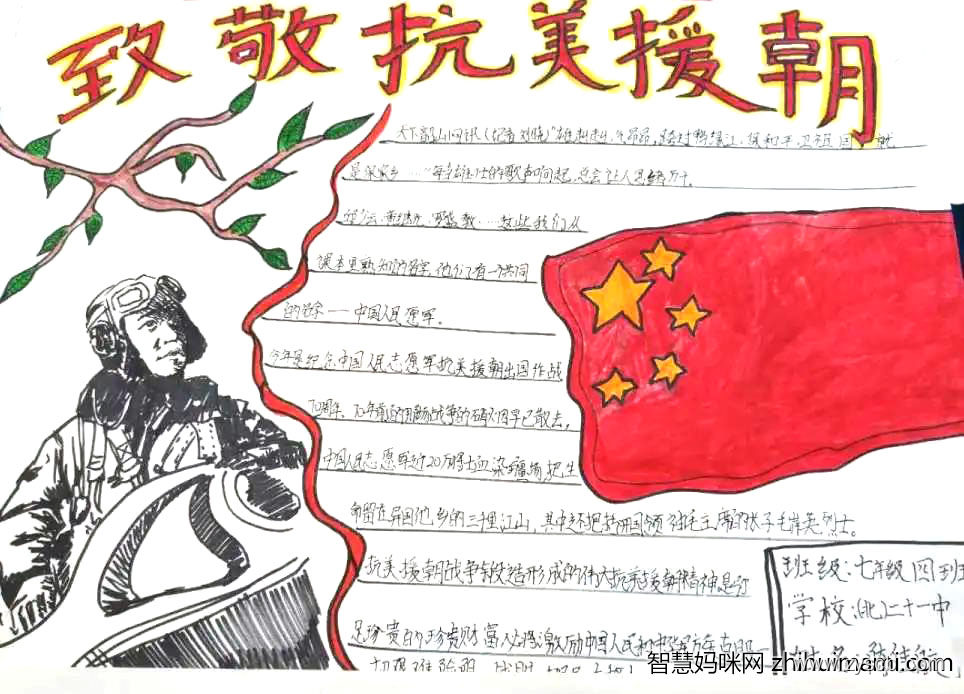 致敬抗美援朝
天下韶山网讯(记者刘晓)"雄赳赳,气昂昂,跨过鸭绿江,保和平,卫祖国,就
是保家乡……"每当雄壮的歌声响起,总会让人思绪万千。
邱少云、黄继光、罗盛教……这些我们从
课本里熟知的名字,他们有一个共同
的名字——中国人民志愿军。
今年是纪念中国人民志愿军抗美援朝出国作战
70周年、70年前的那场战争的硝烟早已散去,
中国人民志愿军近20万将士血染疆场,把生
命留在异国他乡的三千里江山,其中还把持两国领袖毛主席的长子毛岸英烈士。
抗美援朝战争锻造形成的伟大抗美援朝精神是
足珍贵的珍贵财富,必将激励中国人民和中华民族在
班级:七年级四班
学校:北二十一中
智慧妈咪网 zhihuimami.com